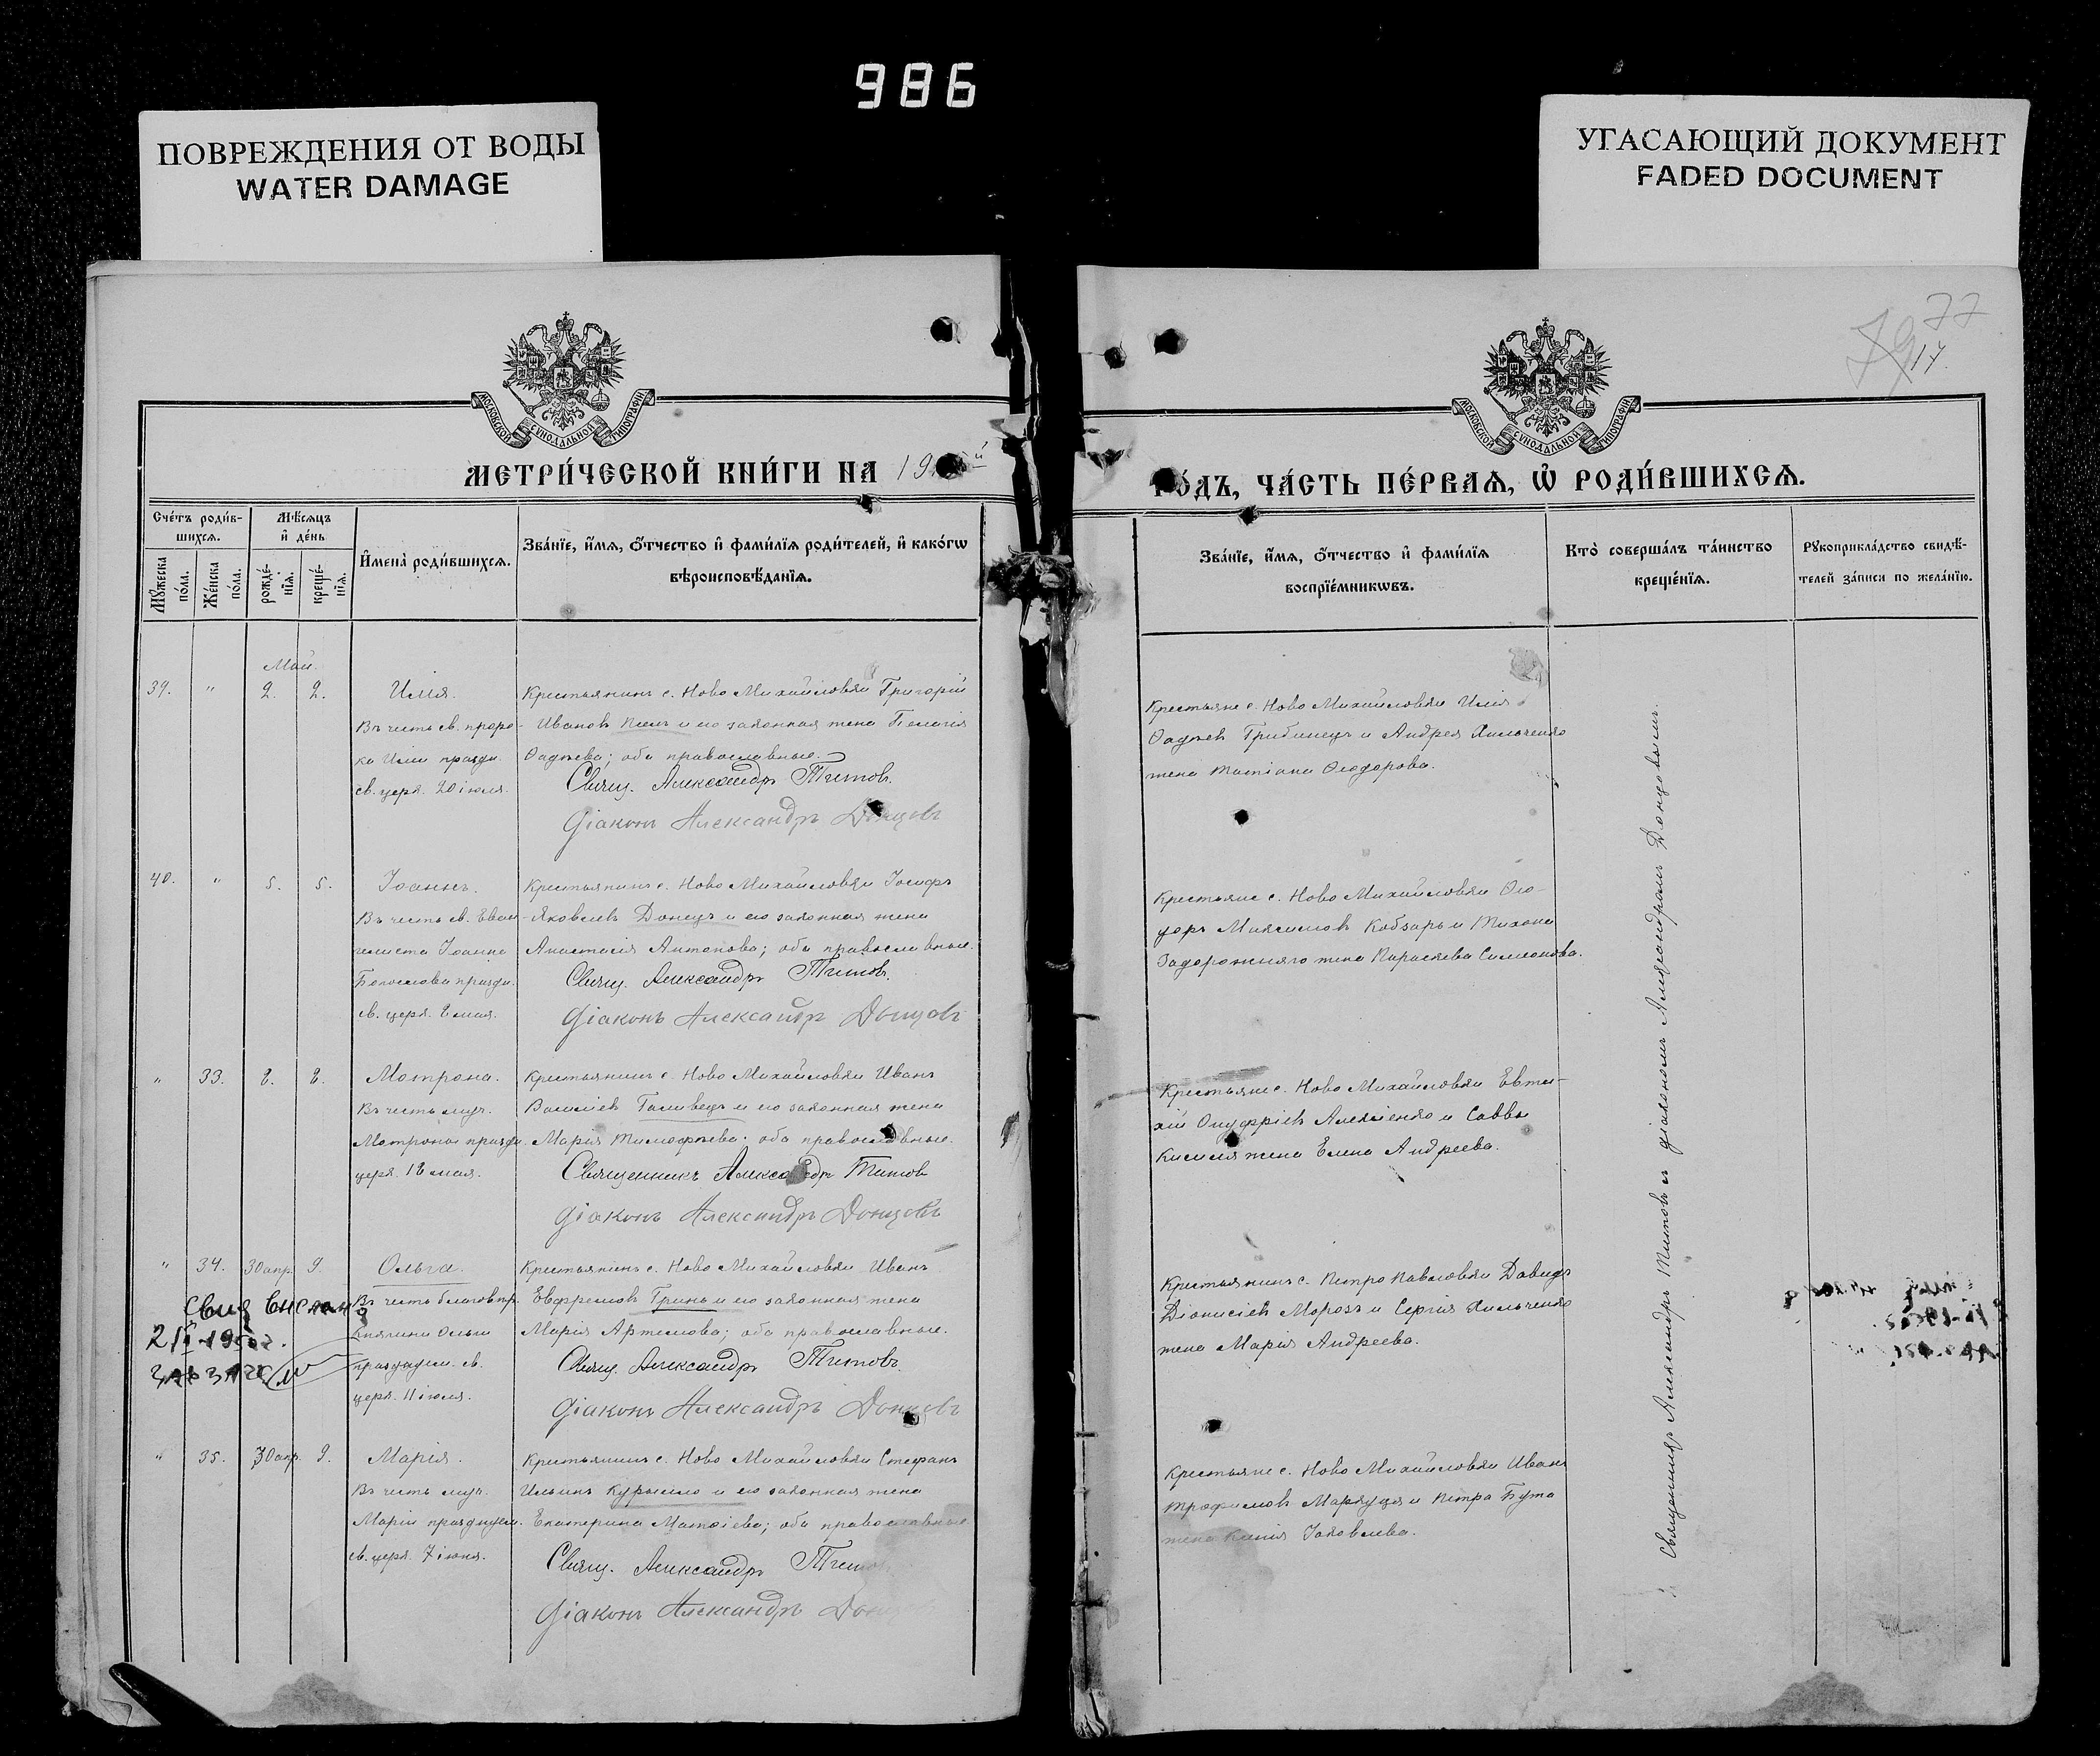 986
ПОВРЕЖДЕНИЯ ОТ ВОДЫ
WATER DAMAGE
УГАСАЮЩИЙ ДОКУМЕНТ
FADED DOCUMENT
77
79
14
МОСКОВСКОЙ СѴНОДАЛЬНОЙ ТИПОГРАФІИ
МОСКОВСКОЙ СѴНОДАЛЬНОЙ ТИПОГРАФІИ
МЕТРИ́ЧЕСКОЙ КНИ́ГИ НА 19
ГО́ДЪ, ЧА́СТЬ ПЕ́РВАѦ, Ѡ҆ РОДИ́ВШИХСѦ.
Сче́тъ роди́в-
шихсѧ.
Мꙋ́жеска по́ла.
Же́нска по́ла.
Мѣ́сѧцъ
и҆ де́нь
рожде́-
нїѧ.
креще́-
нїѧ.
И҆мена̀ роди́вшихсѧ.
Зва́нїе, и҆́мѧ, ѻ҆́тчество и҆ фами́лїѧ роди́телей, и҆ како́гѡ
вѣроисповѣ́данїѧ.
Зва́нїе, и҆́мѧ, ѻ҆́тчество и҆ фами́лїѧ
воспрїе́мникѡвъ.
Кто̀ соверша́лъ та́инство
креще́нїѧ.
Рꙋкоприкла́дство свидѣ́-
телей за́писи по жела́нїю.
Май.
39. " 2. 2. Илія.
Въ честь св. проро-
ка Иліи праздн.
св. церк. 20 іюля.
Крестьянинъ с. Ново Михайловки Григорій
Ивановъ и его законная жена Пелагія
Фадѣева; оба православные.
Свящ. Александръ Титовъ.
Діаконъ Александръ Донцовъ
Крестьяне с. Ново Михайловки Илія
Фадѣевъ Грибинецъ и Андрея Хильченко
жена Татіана Ѳеодорова.
40. " 5. 5. Іоаннъ.
Въ честь св. Еван-
гелиста Іоанна
Богослова праздн.
св. церк. 8 мая.
Крестьянинъ с. Ново Михайловки Іосифъ
Яковлевъ Донецъ и его законная жена
Анастасія Антонова; оба православные.
Свящ. Александръ Титовъ.
Діаконъ Александръ Донцовъ
Крестьяне с. Ново Михайловки Ѳео-
доръ Максимовъ Кобзарь и Тихона
Задорожняго жена Параскева Симеонова.
" 33. 8. 8. Матрона.
Въ честь муч.
Матроны праздн.
церк. 18 мая.
Крестьянинъ с. Ново Михайловки Иванъ
Василіевъ Галивецъ и его законная жена
Марія Тимофѣева; оба православные.
Священникъ Александръ Титовъ
Діаконъ Александръ Донцовъ
Крестьяне с. Ново Михайловки Евти-
хій Онуфріевъ Алексіенко и Саввы
Киселя жена Елена Андреева.
" 34. 30 апр. 9. Ольга.
Въ честь благовѣр.
княгини Ольги
празднуем. св.
церк. 11 іюля.
Крестьянинъ с. Ново Михайловки Иванъ
Евфремовъ Гринь и его законная жена
Марія Артемова; оба православные.
Свящ. Александръ Титовъ.
Діаконъ Александръ Донцовъ
Крестьянинъ с. Петро Павловки Давидъ
Діонисіевъ Морозъ и Сергія Хильченко
жена Марія Андреева.
Свид выслано
" 35. 30 апр. 9. Марія.
Въ честь муч.
Маріи празднуем.
св. церк. 7 іюня.
Крестьянинъ с. Ново Михайловки Стефанъ
Ильинъ Курыло и его законная жена
Екатерина Матѳіева; оба православные.
Свящ. Александръ Титов
Діаконъ Александръ Дон
Крестьяне с. Ново Михайловки Иванъ
Трофимовъ и Петра Бута
жена Ксенія Іаковлева.
Священникъ Александръ Титовъ съ діакономъ Александромъ Донцовымъ.